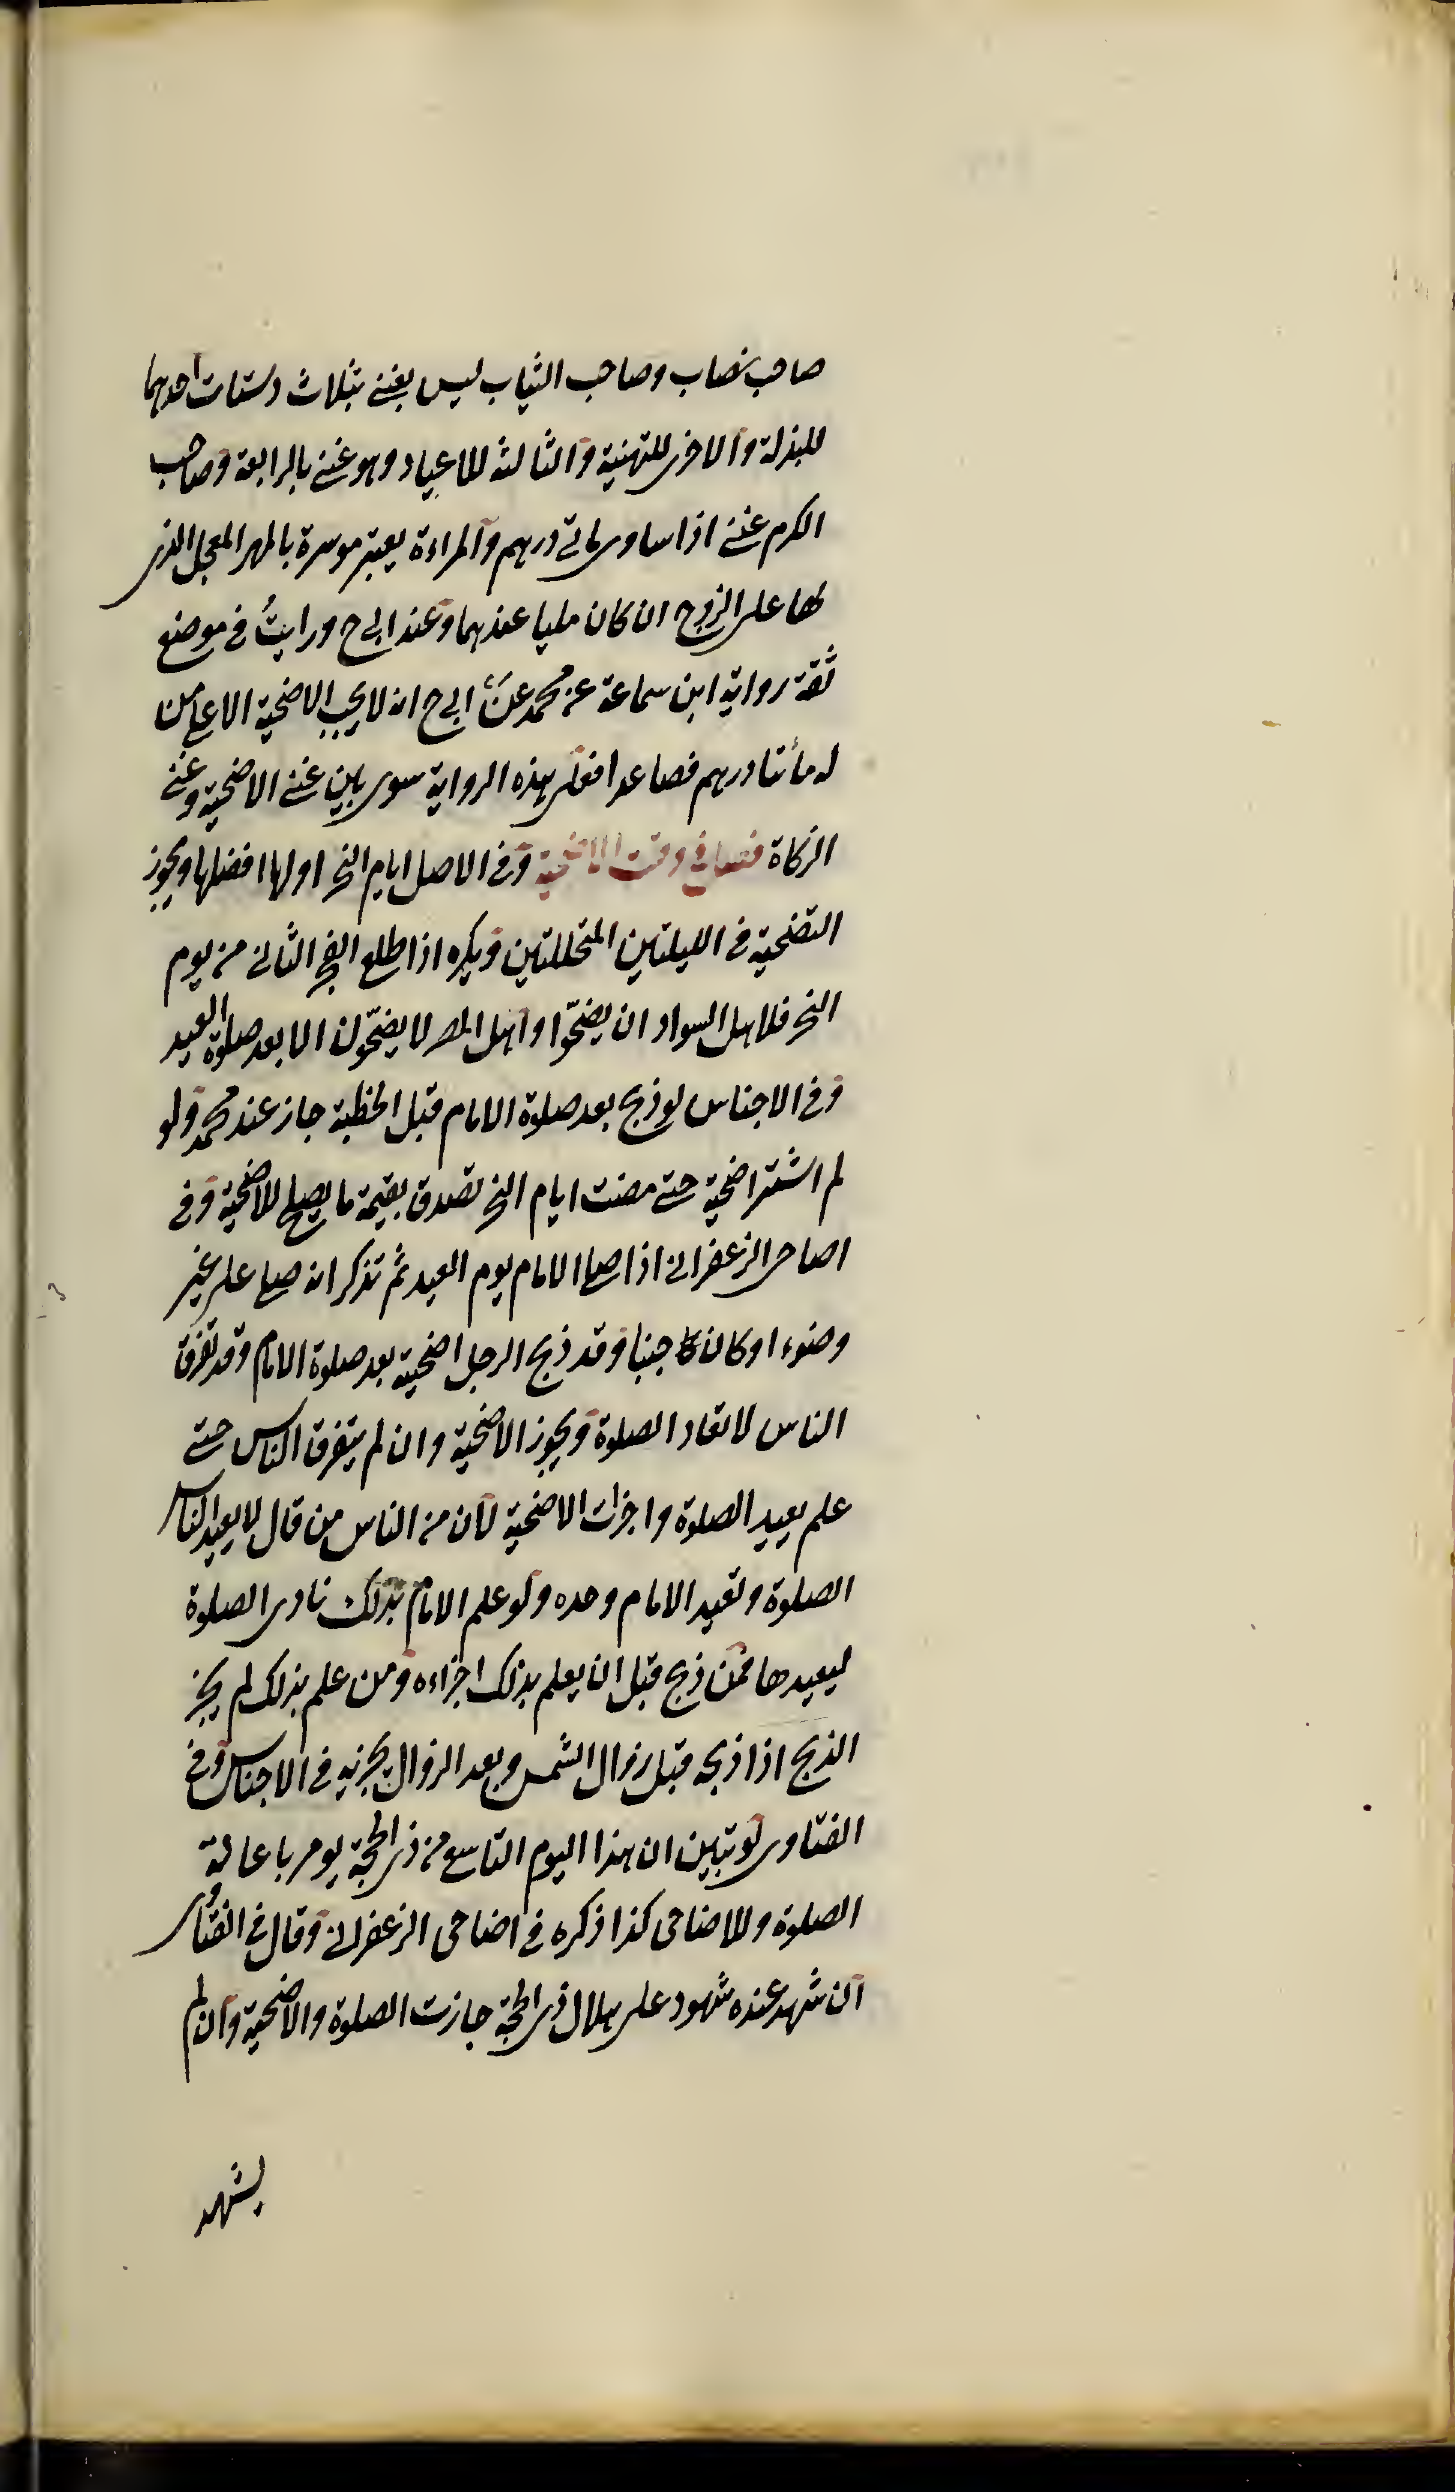 صاحب نصاب وصاحب الثياب ليس بغنى بثلاث دستات احديهما
للبذلة والاخرى للتهنية والثالثة للاعياد وهو غنى بالرابعة وصاحب
الكرم غنى اذا ساوى مائتى درهم والمراءة يعتبر موسرة بالمهر المعجل الذى
لها على الزوج ان كان مليا عندهما وعند ابى ح ورايتُ فى موضع
ثقة رواية ابن سماعة عن محمد عن ابى ح انه لا يجب الاضحية الا على من
له مأتا درهم فصاعدا فعلى هذه الرواية سوى بين غنى الاضحية وغنى
الزكاة فصل فى وقت الاضحية وفى الاصل ايام النحر اولها افضلها ويجوز
التضحية فى الليلتين المتخللتين ويكره اذا طلع الفجر الثانى من يوم
النحر فلاهل السواد ان يضحّوا واهل المصر لا يضحّون الا بعد صلوة العيد
وفى الاجناس لو ذبح بعد صلوة الامام قبل الخطبة جاز عند محمد ولو
لم اشتر اضحية حتى مضت ايام النحر تصدق بقيمة ما يصلح للاضحية وفى
اضاحى الزعفرانى اذا صلى الامام يوم العيد ثم تذكر انه صلى على غير
وضوء او كان جنبا وقد ذبح الرجل اضحية بعد صلوة الامام وقد تفرق
الناس لا تعاد الصلوة ويجوز الاضحية وان لم يتفرق الناس حتى
علم يعيد الصلوة واجزات الاضحية لان من الناس من قال لا يعيد الناس
الصلوة وتعيد الامام وحده ولو علم الامام بذلك نادى الصلوة
ليعيدها فمن ذبح قبل ان يعلم بذلك اجزاءه ومن علم بذلك لم يجز
الذبح اذا ذبحه قبل زوال الشمس وبعد الزوال يجزيه فى الاجناس وفى
الفتاوى لو تبين ان هذا اليوم التاسع من ذى الحجة يومر باعادة
الصلوة وللاضاحى كذا ذكره فى اضاحى الزعفرانى وقال فى الفتاوى
ان شهد عنده شهود على هلال ذى الحجة جازت الصلوة والاضحية وان لم
يشهد